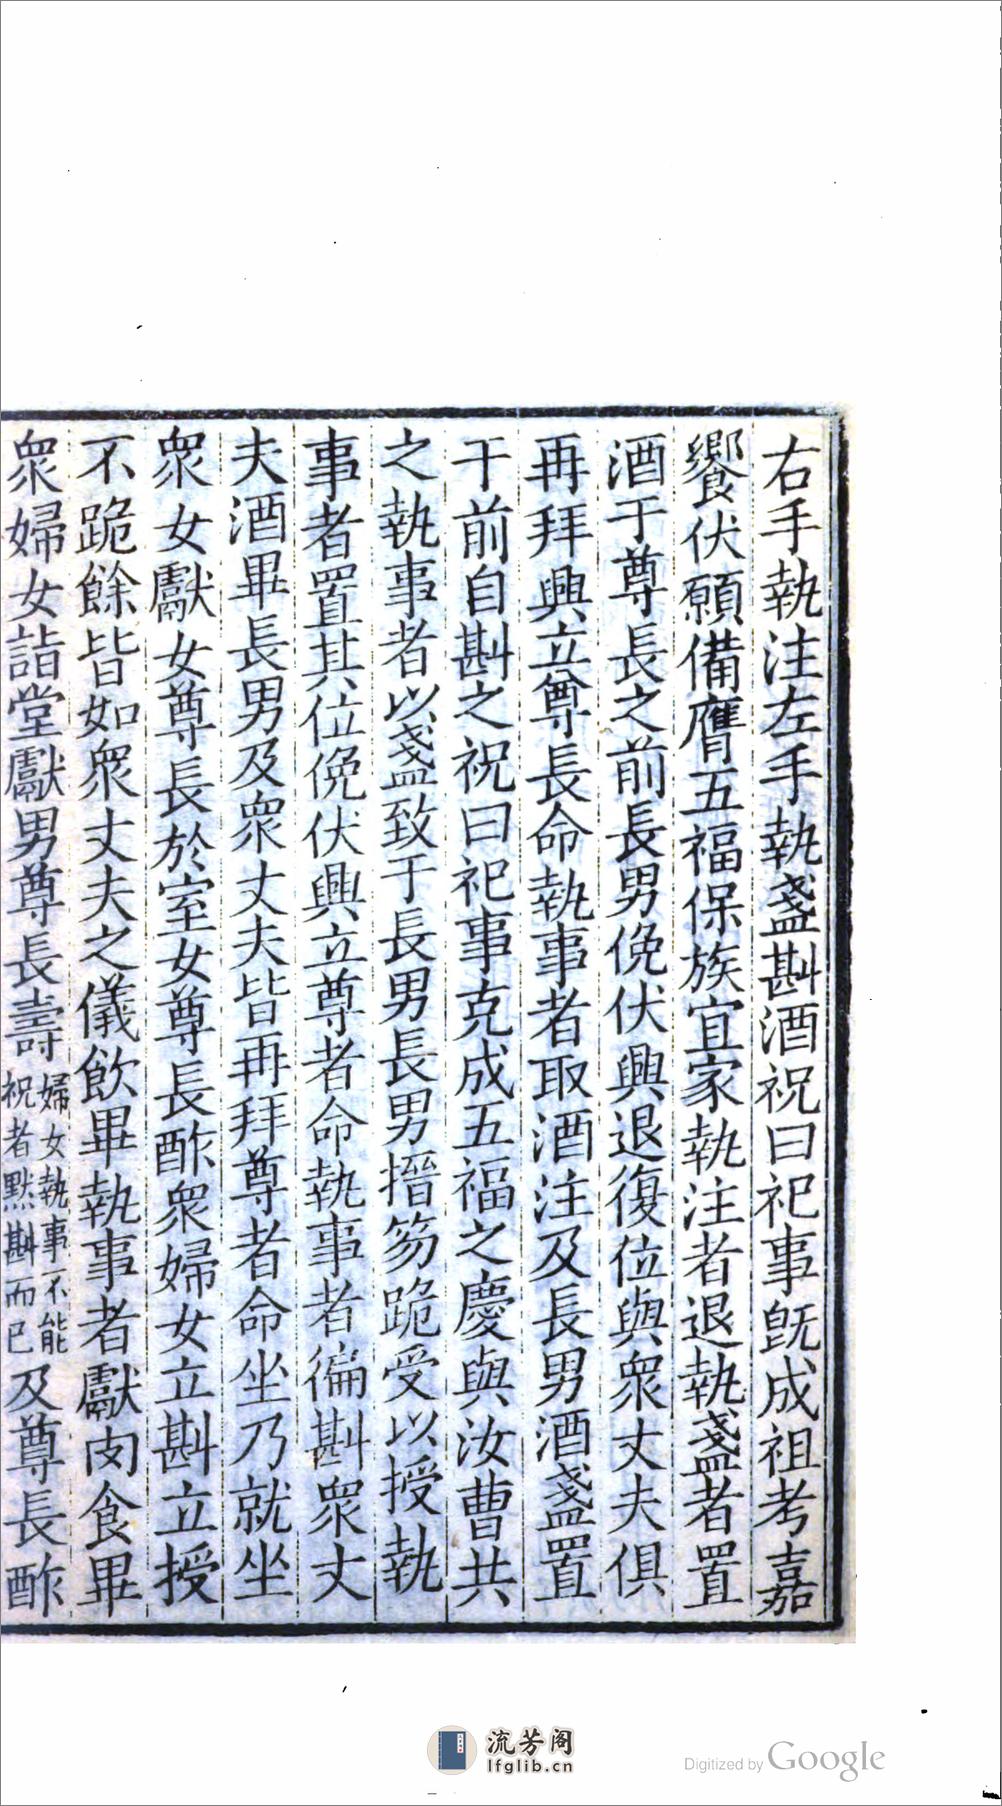 右手執注左手執盞斟酒祝曰祀事旣成祖考嘉
饗伏願備膺五福保族宜家執注者退執盞者置
酒于尊長之前長男俛伏興退復位與衆丈夫俱
再拜興立尊長命執事者取酒注及長男酒盞置
于前自斟之祝曰祀事克成五福之慶與汝曹共
之執事者以盞致于長男長男搢笏跪受以授執
事者置其位俛伏興立尊者命執事者徧斟衆丈
夫酒畢長男及衆丈夫皆再拜尊者命坐乃就坐
衆女獻女尊長於室女尊長酢衆婦女立斟立授
不跪餘皆如衆丈夫之儀飲畢執事者獻肉食畢
衆婦女詣堂獻男尊長壽婦女執事不能祝者默斟而已及尊長酢
流芳阁
lfglib.cn
Digitized by Google